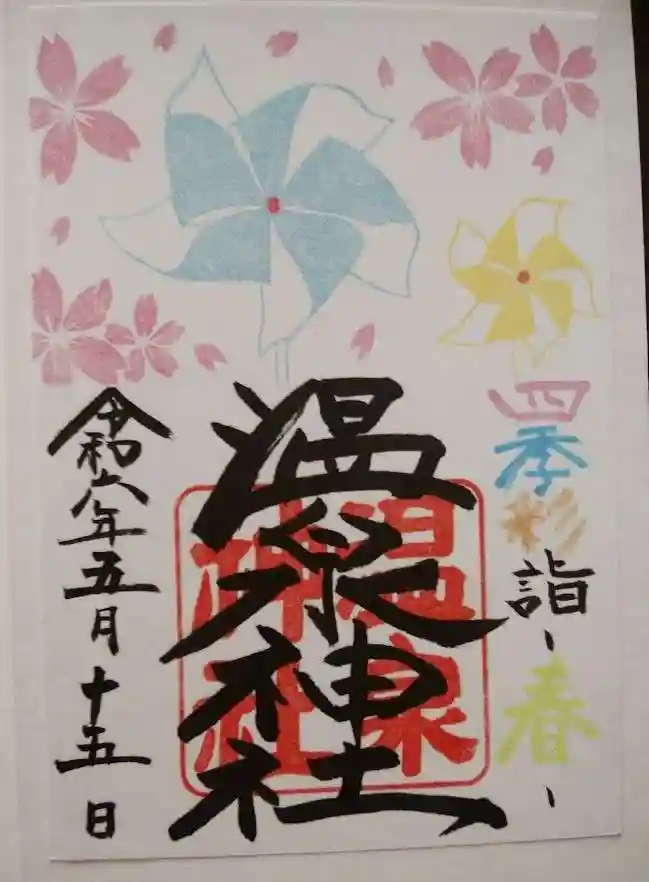 四季彩詣~春~
温泉神社
温泉
神社
令和六年五月十五日